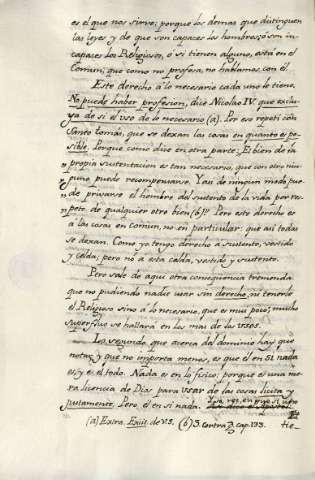 es el que nos sirve; porque los demas que distinguen
las leyes y de que son capaces los hombres, ò son in-
capaces los Religiosos, ò si tienen alguno, està en el
Comun, que como no profesa, no hablamos con èl.
Este derecho à lo necesario cada uno le tiene.
No puede haber profesion, dice Nicolao IV. que exclu-
ya de si el uso de lo necesario (a). Por eso repetì con
Santo Tomás, que se dexan las cosas en quanto es po-
sible. Porque como dice en otra parte: El bien de la
propia sustentacion es tan necesario, que con otro nin-
guno puede recompensarse. Y asi de ningun modo pue-
de privarse el hombre del sustento de la vida por res-
peto de qualquier otro bien (b). Pero este derecho es
à las cosas en comun, no en particular: que asi todas
se dexan. Como yo tengo derecho a sustento, vestido
y celda; pero no à esta celda, vestido y sustento.
Pero sale de aqui otra consequencia tremenda
que no pudiendo nadie usar sin derecho, ni tenerle
el Religioso sino à lo necesario, que es mui poco; mucho
superfluo se hallarà en los mas de los usos.
Lo segundo que acerca del dominio hay que
notar, y que no importa menos, es que èl en sì nada
es, y es el todo. Nada es en lo fisico; porque es una me-
ra licencia de Dios para usar de las cosas licita y
justamente. Pero, èl en sì nada.
(a) Extra. Exiit. de V.S. (b) 3. Contra G. cap. 133. tie-